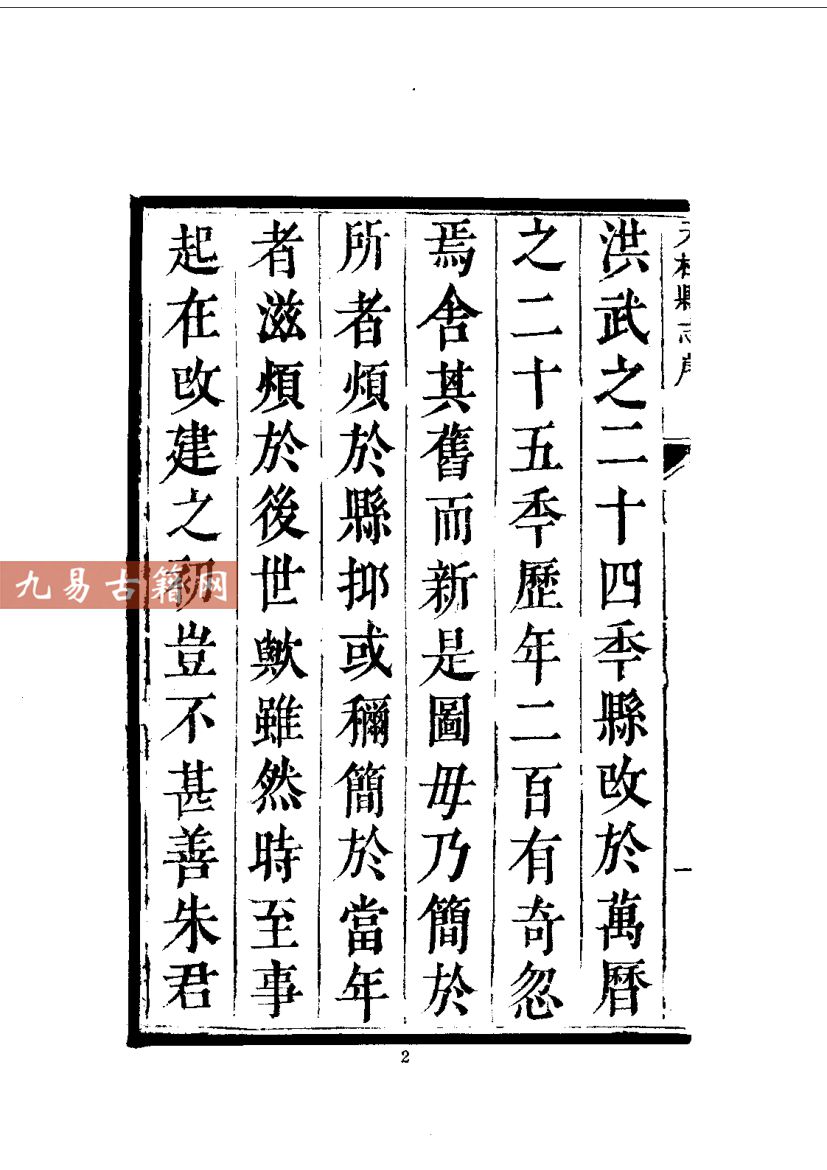 天柱縣志序
一
洪武之二十四秊縣改於萬曆
之二十五秊歷年二百有奇忽
焉舍其舊而新是圖毋乃簡於
所者煩於縣抑或穪簡於當年
者滋煩於後世歟雖然時至事
起在改建之初豈不甚善朱君
九易古籍网
2